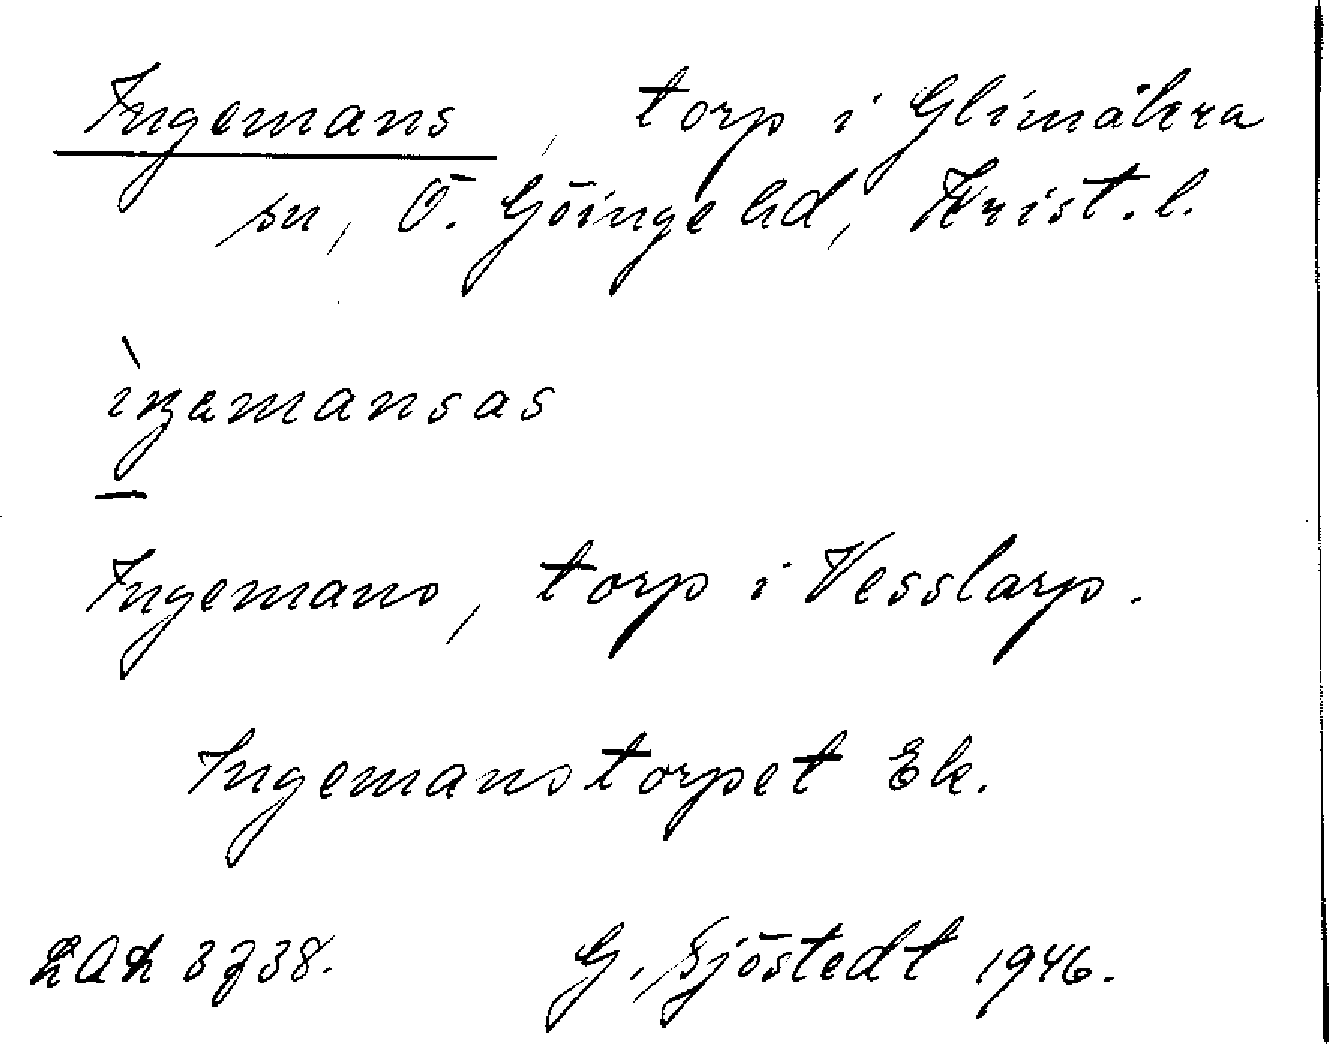 Ingemans, torp i Glimåkra
sn, Ö. Göinge hd, Krist. l.
ìŋamansas
Ingemans, torp i Vesslarp.
Ingemanstorpet Ek.
LAL 3738.
G. Sjöstedt 1946.